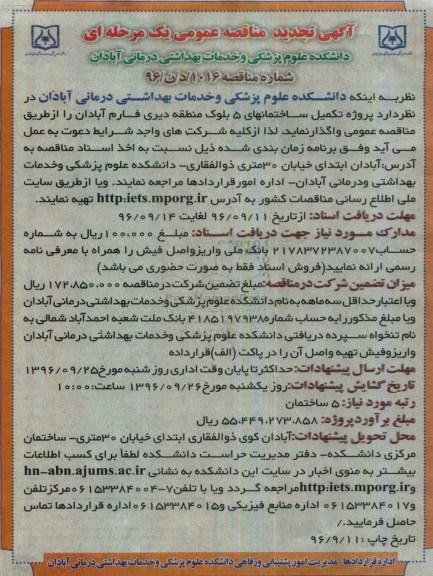 آگهی تجدید مناقصه عمومی یک مرحله ای
دانشکده علوم پزشکی وخدمات بهداشتی درمانی آبادان
شماره مناقصه ۱۰۱۶/د/ن/۹۶
نظربه اینکه دانشکده علوم پزشکی وخدمات بهداشتی درمانی آبادان در
نظردارد پروژه تکمیل ساختمانهای ۵ بلوک منطقه دیری فارم آبادان را ازطریق
مناقصه عمومی واگذارنماید، لذا ازکلیه شرکت های واجد شرایط دعوت به عمل
می آید وفق برنامه زمان بندی شده ذیل نسبت به اخذ اسناد مناقصه به
آدرس:آبادان ابتدای خیابان ۳۰متری ذوالفقاری- دانشکده علوم پزشکی وخدمات
بهداشتی ودرمانی آبادان- اداره امورقراردادها مراجعه نمایند. ویا ازطریق سایت
ملی اطلاع رسانی مناقصات کشور به آدرس http:iets.mporg.ir تهیه نمایند.
مهلت دریافت اسناد: ازتاریخ ۹۶/۰۹/۱۱ لغایت ۹۶/۰۹/۱۴
مدارک مورد نیاز جهت دریافت اسناد: مبلغ ۱۰۰.۰۰۰ریال به شماره
حساب۲۱۷۸۳۷۲۳۸۷۰۰۷ بانک ملی واریزواصل فیش را همراه با معرفی نامه
رسمی ارائه نمایید(فروش اسناد فقط به صورت حضوری می باشد)
میزان تضمین شرکت درمناقصه:مبلغ تضمین شرکت درمناقصه ۱۷۲.۸۵۰.۰۰۰ ریال
وبا اعتبارحداقل سه ماهه به نام دانشکده علوم پزشکی وخدمات بهداشتی درمانی آبادان
ویا مبلغ مذکوررابه حساب شماره۴۱۸۵۱۹۷۹۳۸ بانک ملت شعبه احمدآباد شمالی به
نام تنخواه سپرده دریافتی دانشکده علوم پزشکی وخدمات بهداشتی درمانی آبادان
واریزوفیش تهیه واصل آن را در پاکت (الف)قرارداده
مهلت ارسال پیشنهادات:حداکثرتا پایان وقت اداری روز شنبه مورخ۱۳۹۶/۰۹/۲۵
تاریخ گشایش پیشنهادات:روز یکشنبه مورخ۱۳۹۶/۰۹/۲۶ ساعت:۱۰:۰۰
رتبه مورد نیاز: ۵ ساختمان
مبلغ برآوردپروژه: ۵۵.۴۴۹.۲۷۳.۸۵۸ ریال
محل تحویل پیشنهادات:آبادان کوی ذوالفقاری ابتدای خیابان ۳۰متری- ساختمان
مرکزی دانشکده- دفتر مدیریت حراست دانشکده لطفاً برای کسب اطلاعات
بیشتر به منوی اخبار در سایت این دانشکده به نشانی hn-abn.ajums.ac.ir
وhttp:iets.mporg.irمراجعه گردد ویا با تلفن۷-۰۶۱۵۳۳۸۴۰۰۴مرکزتلفن
و۰۶۱۵۳۳۸۴۰۱۷ اداره منابع فیزیکی و۰۶۱۵۳۳۸۴۰۱۵اداره قراردادها تماس
حاصل فرمایید./
تاریخ چاپ :۹۶/۹/۱۱
اداره قراردادها- مدیریت امور پشتیبانی ورفاهی دانشکده علوم پزشکی وخدمات بهداشتی درمانی آبادان